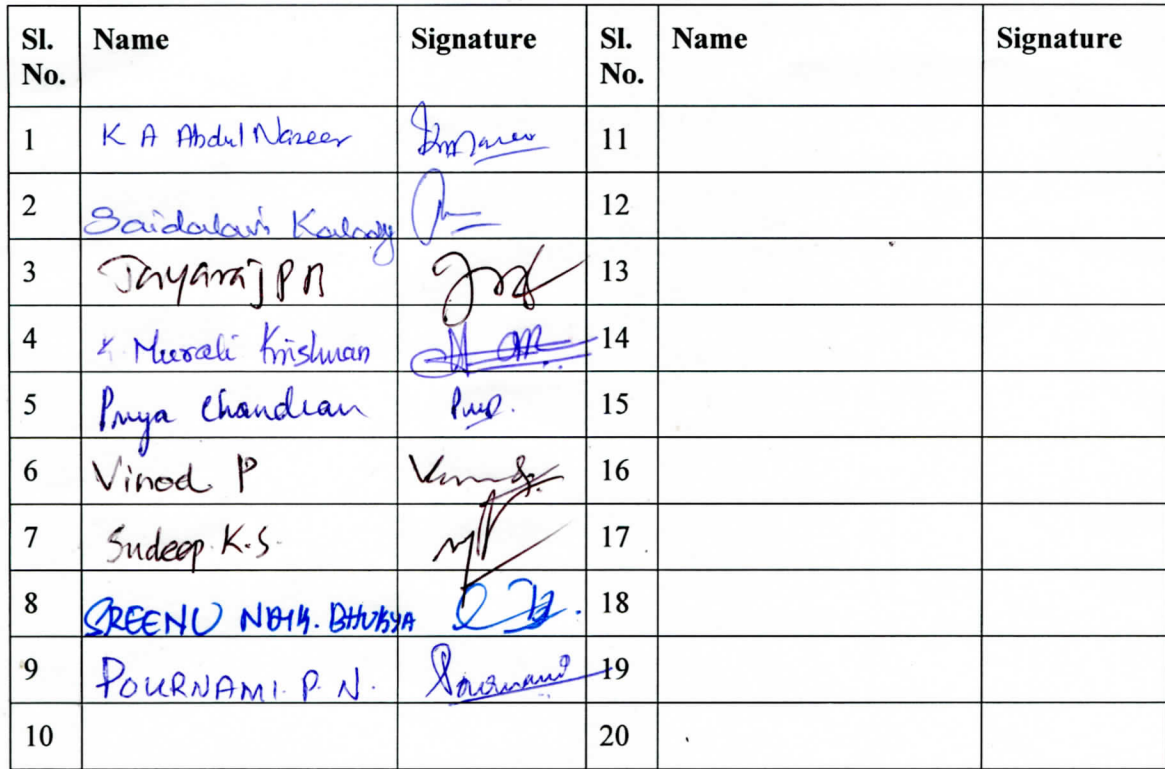 Sl. No. Name Signature Sl. No. Name Signature
1 K A Abdul Nazeer 11
2 Saidalavi Kalady 12
3 Jayaraj P B 13
4 Murali Krishnan 14
5 Priya Chandran 15
6 Vinod P 16
7 Sudeep. K.S. 17
8 SREENU NAIK. BHUKYA 18
9 POURNAMI. P. N. Pournami 19
10 20